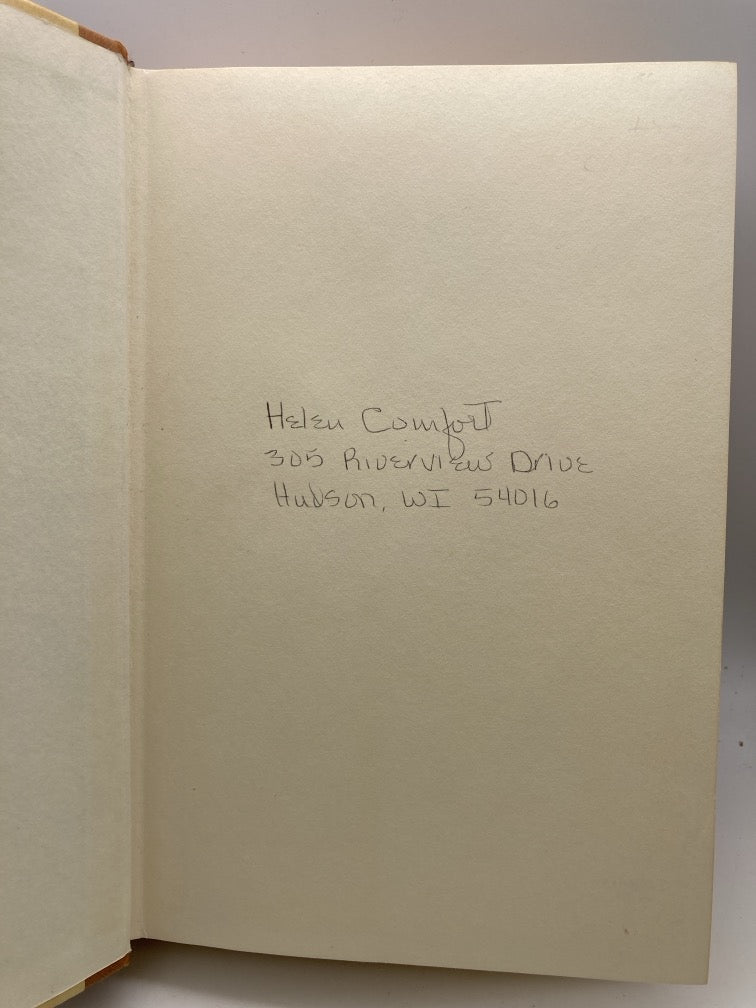 Helen Comfort
305 Riverview Drive
Hudson, WI 54016